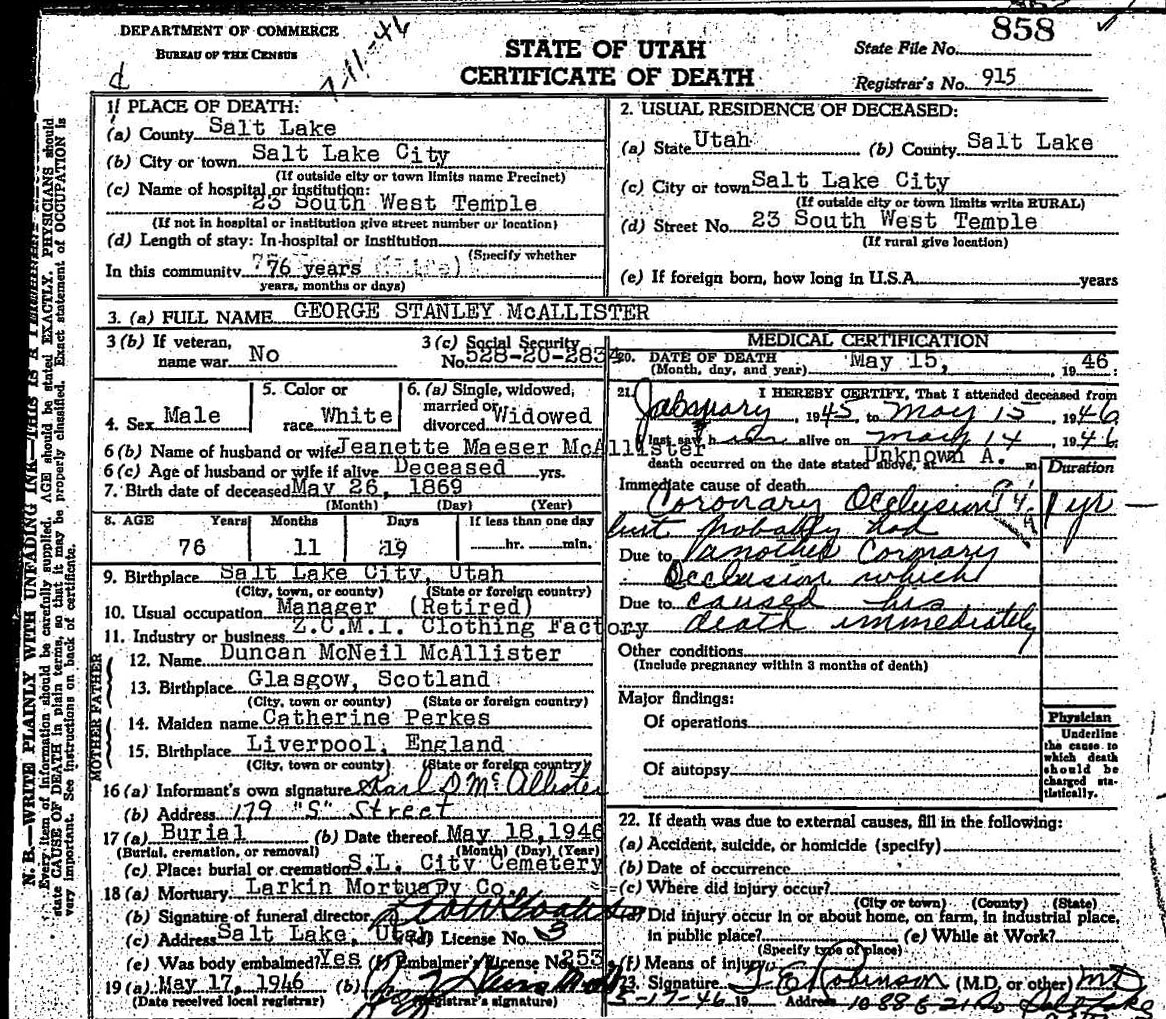 DEPARTMENT OF COMMERCE
BUREAU OF THE CENSUS
7-11-46
STATE OF UTAH
CERTIFICATE OF DEATH
State File No. 858
Registrar's No. 915
1. PLACE OF DEATH:
(a) County Salt Lake
(b) City or town Salt Lake City
(If outside city or town limits name Precinct)
(c) Name of hospital or institution:
23 South West Temple
(If not in hospital or institution give street number or location)
(d) Length of stay: In hospital or institution
(Specify whether
In this community 76 years
years, months or days)
2. USUAL RESIDENCE OF DECEASED:
(a) State Utah (b) County Salt Lake
(c) City or town Salt Lake City
(If outside city or town limits write RURAL)
(d) Street No. 23 South West Temple
(If rural give location)
(e) If foreign born, how long in U.S.A. years
3. (a) FULL NAME GEORGE STANLEY McALLISTER
3 (b) If veteran, name war No
3 (c) Social Security No. 528-20-2834
4. Sex Male
5. Color or race White
6. (a) Single, widowed, married or divorced Widowed
6 (b) Name of husband or wife Jeanette Maeser McAllister
6 (c) Age of husband or wife if alive Deceased yrs.
7. Birth date of deceased May 26, 1869
(Month) (Day) (Year)
8. AGE Years Months Days If less than one day
76 11 19 hr. min.
9. Birthplace Salt Lake City, Utah
(City, town, or county) (State or foreign country)
10. Usual occupation Manager (Retired)
11. Industry or business Z.C.M.I. Clothing Factory
FATHER
12. Name Duncan McNeil McAllister
13. Birthplace Glasgow, Scotland
(City, town or county) (State or foreign country)
MOTHER
14. Maiden name Catherine Perkes
15. Birthplace Liverpool, England
(City, town or county) (State or foreign country)
16 (a) Informant's own signature McAllister
(b) Address 179 "S" Street
17 (a) Burial (b) Date thereof May 18, 1946
(Burial, cremation, or removal) (Month) (Day) (Year)
(c) Place: burial or cremation S.L. City Cemetery
18 (a) Mortuary Larkin Mortuary Co.
(b) Signature of funeral director
(c) Address Salt Lake, Utah (d) License No. 3
(e) Was body embalmed? Yes (f) Embalmer's License No. 253
19 (a) May 17, 1946 (b)
(Date received local registrar) (Registrar's signature)
MEDICAL CERTIFICATION
20. DATE OF DEATH May 15, 1946
(Month, day, and year)
21. I HEREBY CERTIFY, That I attended deceased from
January, 1945, to May 15, 1946
I last saw him alive on May 14, 1946
death occurred on the date stated above, at Unknown A. m
Duration
Immediate cause of death
Coronary Occlusion 1 yr
but probably had
Due to another Coronary
Occlusion which
Due to caused his
death immediately
Other conditions
(Include pregnancy within 3 months of death)
Major findings:
Of operations
Of autopsy
Physician
Underline the cause to which death should be charged statistically.
22. If death was due to external causes, fill in the following:
(a) Accident, suicide, or homicide (specify)
(b) Date of occurrence
(c) Where did injury occur?
(City or town) (County) (State)
Did injury occur in or about home, on farm, in industrial place,
in public place? (e) While at Work?
(Specify type of place)
(f) Means of injury
23. Signature Robinson (M.D. or other) MD
5-17-46 19 Address
N. B.—WRITE PLAINLY WITH UNFADING INK—THIS IS A PERMANENT
Every item of information should be carefully supplied. AGE should be stated EXACTLY. PHYSICIANS should
state CAUSE OF DEATH in plain terms, so that it may be properly classified. Exact statement of OCCUPATION is
very important. See instructions on back of certificate.